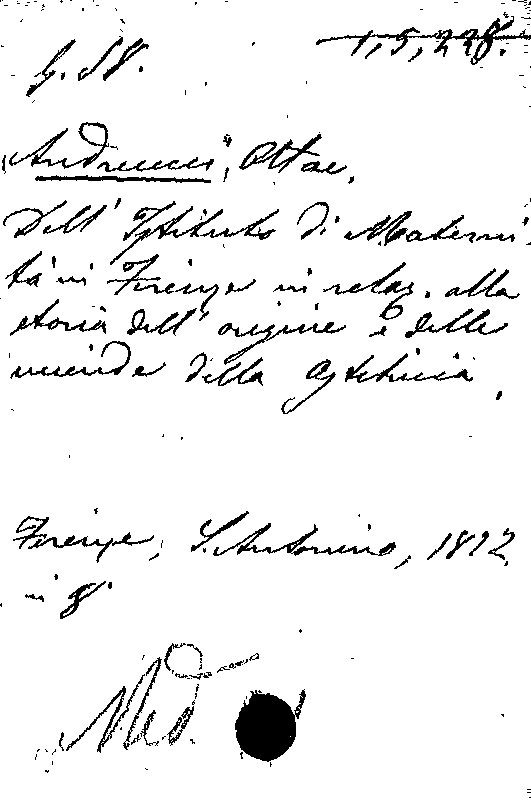 1,5,228.
G. 58.
Andreucci, Ottav.
Dell' Istituto di Materni
tà in Firenze in relaz. alla
storia dell' origine e delle
vicende della Ostetricia.
Firenze, S. Antonino, 1872
in 8°
Med.